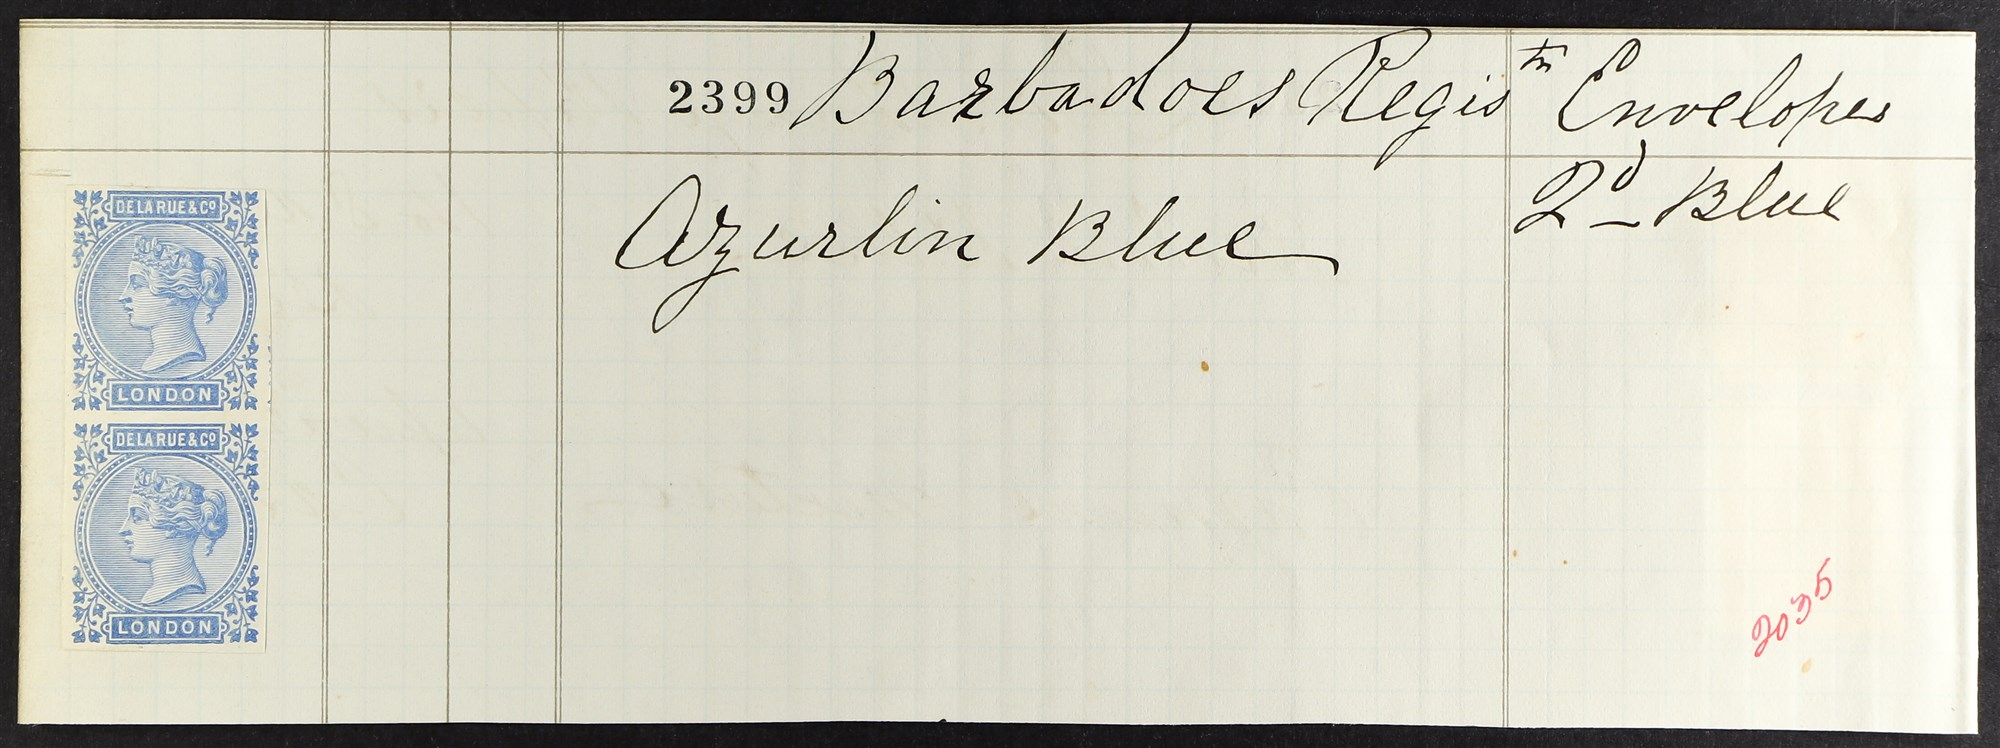 2399 Barbadoes Regis tn Envelopes
2d Blue
Azurlin Blue
DE LA RUE & Co
LONDON
DE LA RUE & Co
LONDON
2035